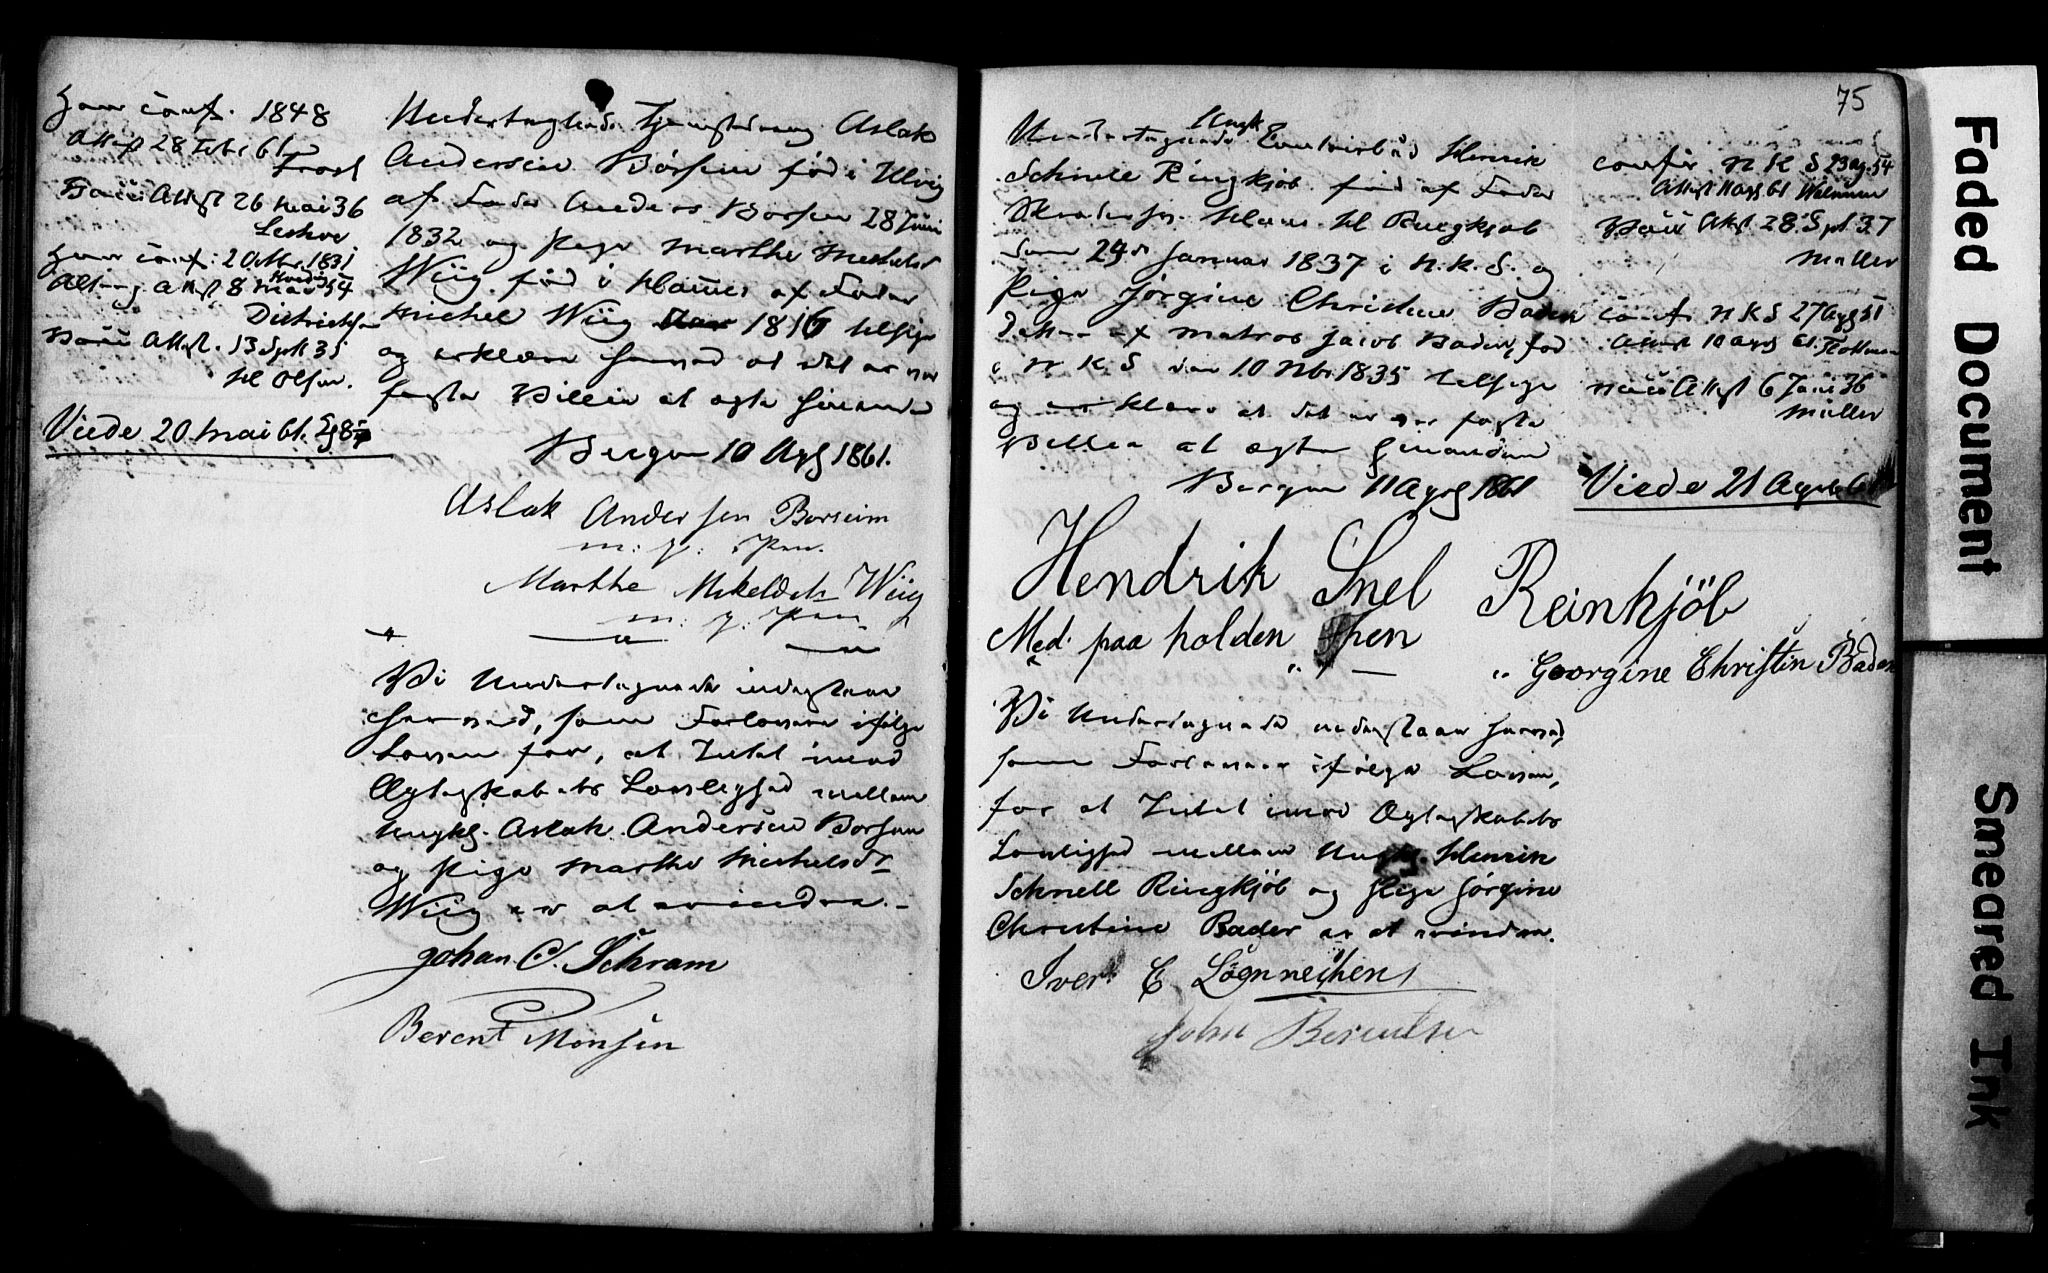 Han conf. 1848
Attest 28 Febr 61
Frost
Vacc Attest 26 Mai 36
Hun conf. 2 Octbr. 1831
Attest 8 Mai 54
Vacc Attest. 13 Sept 35
Olsen.
Viede 20 Mai 61.
Undertegnede Aslak
Andersen Börsem född i Ulvig
af Fader Anders Borsem 28 Juni
1832 og Pige Marthe Michelsdr
Wiig född i Hammer af Fader
Michel Wiig 1816 tilsige
og erklære herved at det er vor
faste Villie at ægte hinanden
Bergen 10 Apl 1861.
Aslak Andersen Borseim
m: p: Pen.
Marthe Mikelsdt Wiig
m: p: Pen
Vi Undertegnede indestaae
herved, som Forlovere ifølge
Loven for, at Intet imod
Ægteskabets Lovlighed mellem
Ungkl. Aslak Andersen Borsem
og Pige Marthe Michelsdr
Wiig er at erindre.
Johan C. Schram
Berent Monsen
75
Undertegnede Ungk Henrik
Schnell Ringkjöb föd af Fader
Ringkjöb
den 29de Januar 1837 i N. K. S. og
Pige Jörgine Christine Bader
Datter af Matros Jacob Bader, föd
i N K. S den 10 Nbr 1835 tilsige
og erklære at det er vor faste
Villie at ægte hinanden
Bergen 11 April 1861
Hendrik Snel Reinkjöb
Med paa holden Pen
Georgine Christin Bader
Vi Undertegnede indestaaer herved
som Forlovere ifølge Loven,
for at Intet imod Ægteskabets
Lovlighed mellem Ungk. Henrik
Schnell Ringkjöb og Pige Jörgine
Christine Bader er at erindre.
Iver E
John Berentsen
confir N K S 23 Ag. 54
Attest 11 Apl 61
Vacc Atst 28. Spt 37
Müller
conf N K S
Attest 10 Apl 61.
Vacc Attest 6 Juni 36
Müller
Viede 21 April 61
Faded Document
Smeared Ink